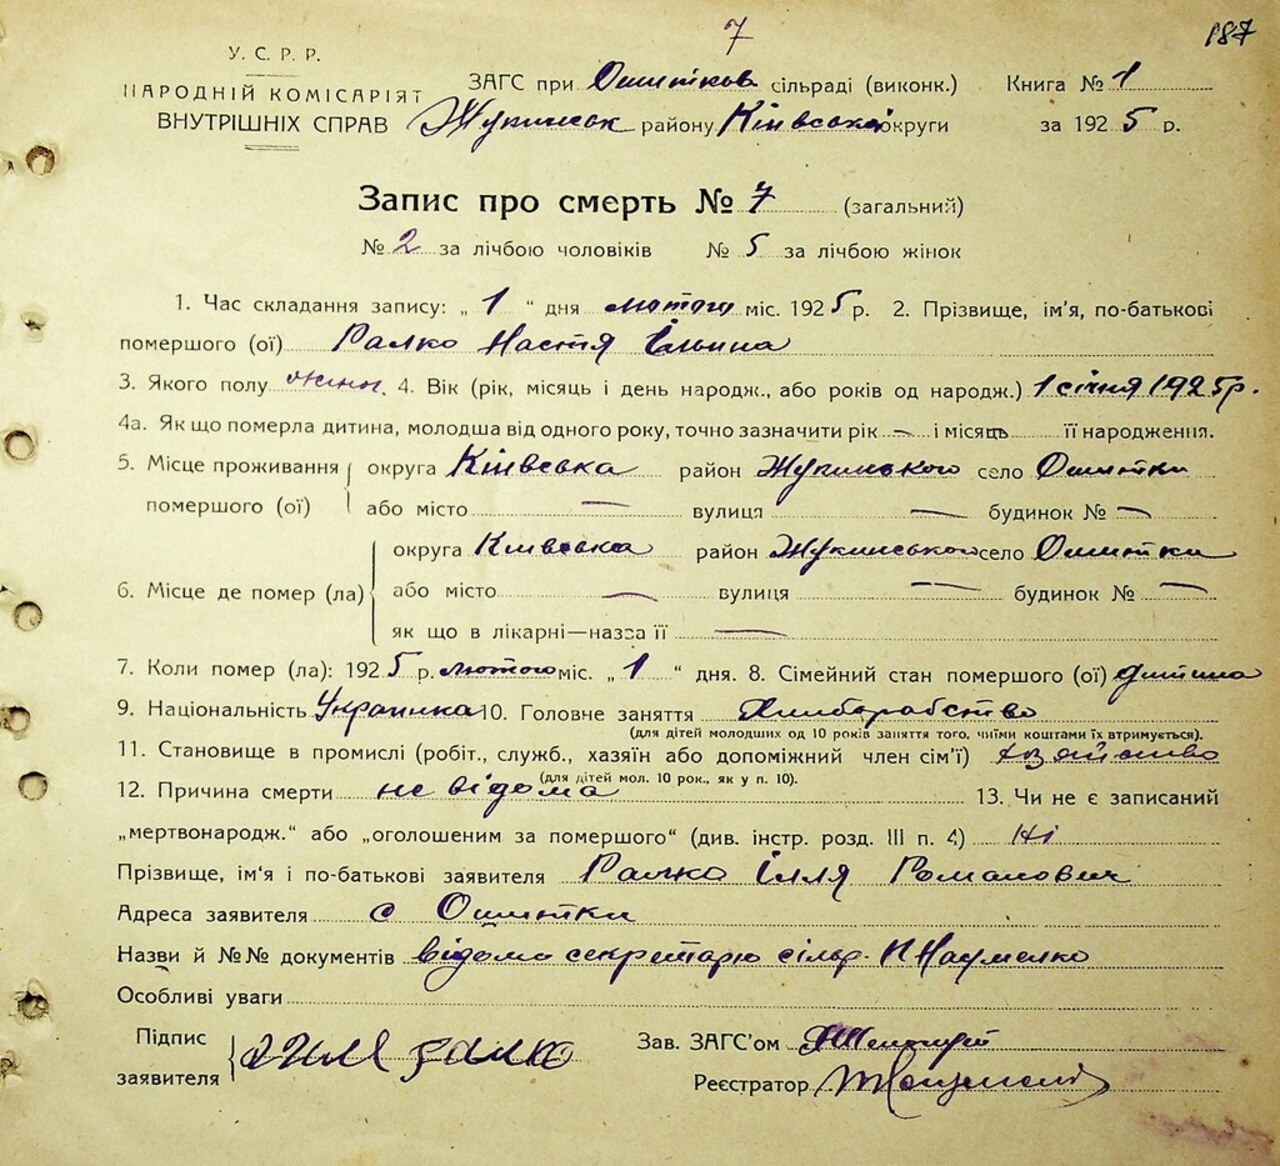 7
187
У. С. Р. Р.
НАРОДНІЙ КОМІСАРІЯТ
ВНУТРІШНІХ СПРАВ
ЗАГС при Ошитков сільраді (виконк.) Книга № 1
Жукинськ району Київської округи за 1925 р.
Запис про смерть № 7 (загальний)
№ 2 за лічбою чоловіків № 5 за лічбою жінок
1. Час складання запису: „ 1 “ дня лютого міс. 1925 р. 2. Прізвище, ім'я, по-батькові
помершого (ої) Ралко Настя Ільїна
3. Якого полу жіноч. 4. Вік (рік, місяць і день народж., або років од народж.) 1 січня 1925р.
4а. Як що померла дитина, молодша від одного року, точно зазначити рік — і місяць її народження.
5. Місце проживання помершого (ої) округа Київська район Жукинського село Ошитки
або місто — вулиця — будинок № —
6. Місце де помер (ла) округа Київська район Жукинського село Ошитки
або місто — вулиця — будинок № —
як що в лікарні—назва її —
7. Коли помер (ла): 1925 р. лютого міс. „ 1 “ дня. 8. Сімейний стан помершого (ої) дитина
9. Національність Украинка 10. Головне заняття Хлиборобство
(для дітей молодших од 10 років заняття того, чиїми коштами їх втримується).
11. Становище в промислі (робіт., служб., хазяїн або допоміжний член сім'ї) хозяйство
(для дітей мол. 10 рок., як у п. 10).
12. Причина смерти не відома 13. Чи не є записаний
„мертвонародж.“ або „оголошеним за помершого“ (див. інстр. розд. III п. 4) Ні
Прізвище, ім'я і по-батькові заявителя Ралко Ілля Романович
Адреса заявителя с Ошитки
Назви й №№ документів відомо секретарю сільр. П Науменко
Особливі уваги
Підпис заявителя Илля Ралко
Зав. ЗАГС'ом
Реєстратор